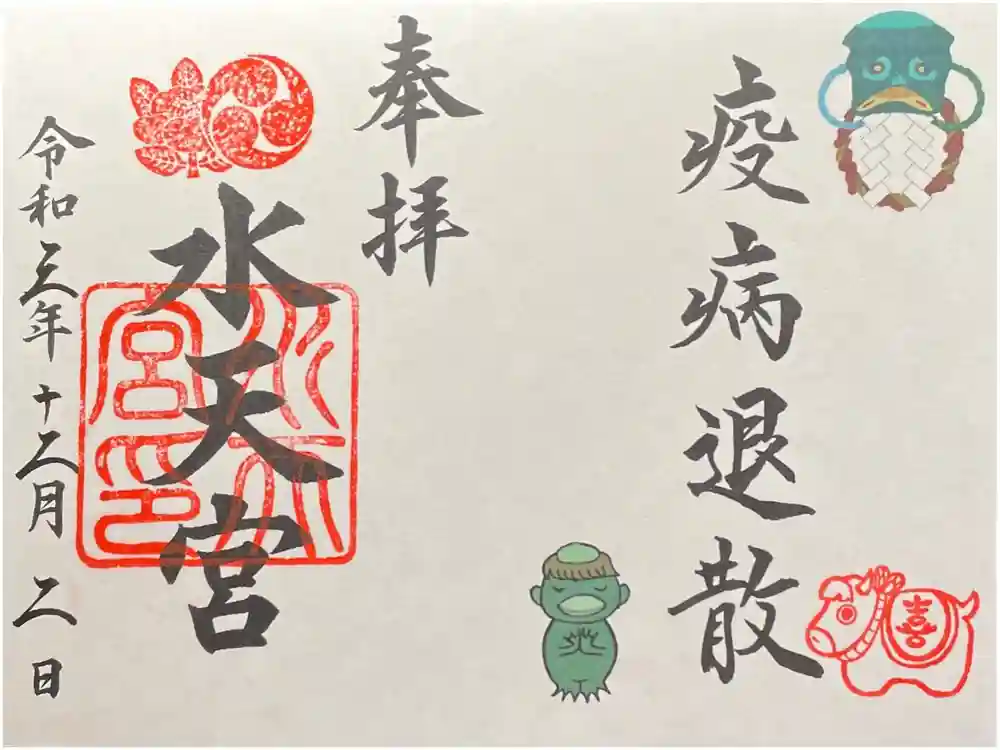 疫病退散
喜
奉拝
水天宮
水天宮印
令和三年十二月二日